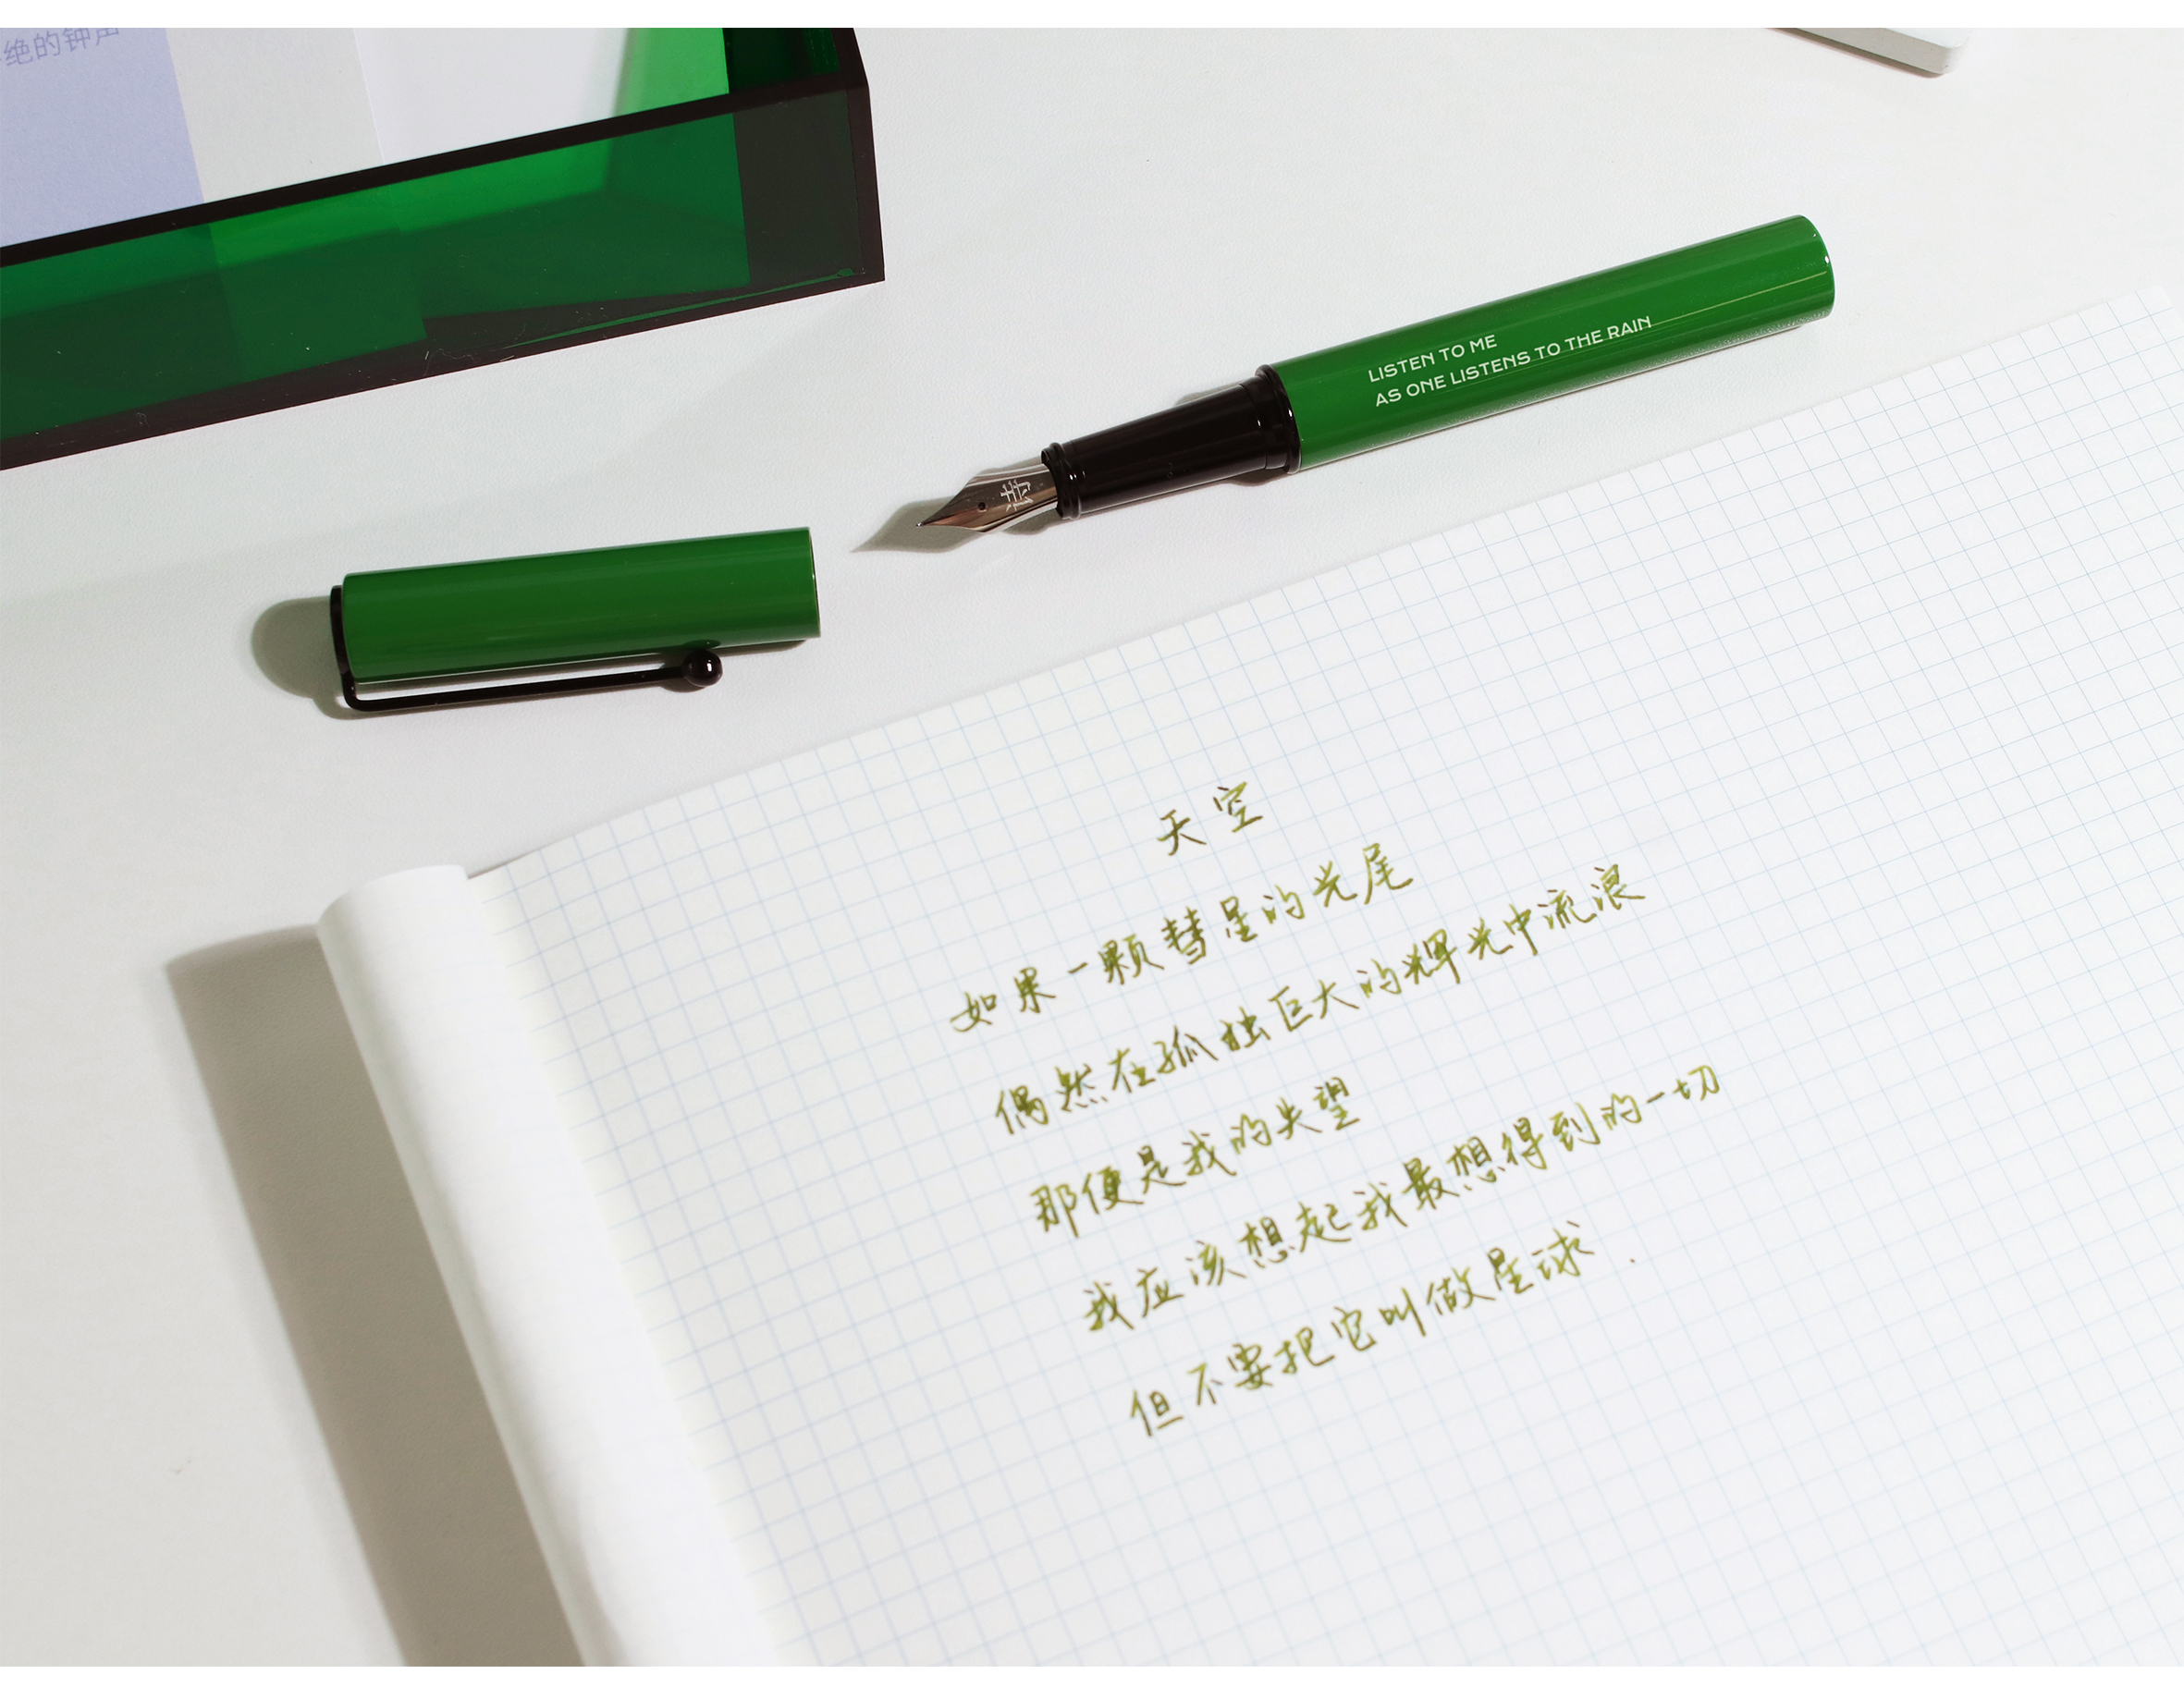 绝的钟声
LISTEN TO ME
AS ONE LISTENS TO THE RAIN
天空
如果一颗彗星的光尾
偶然在孤独巨大的辉光中流浪
那便是我的失望
我应该想起我最想得到的一切
但不要把它叫做星球.